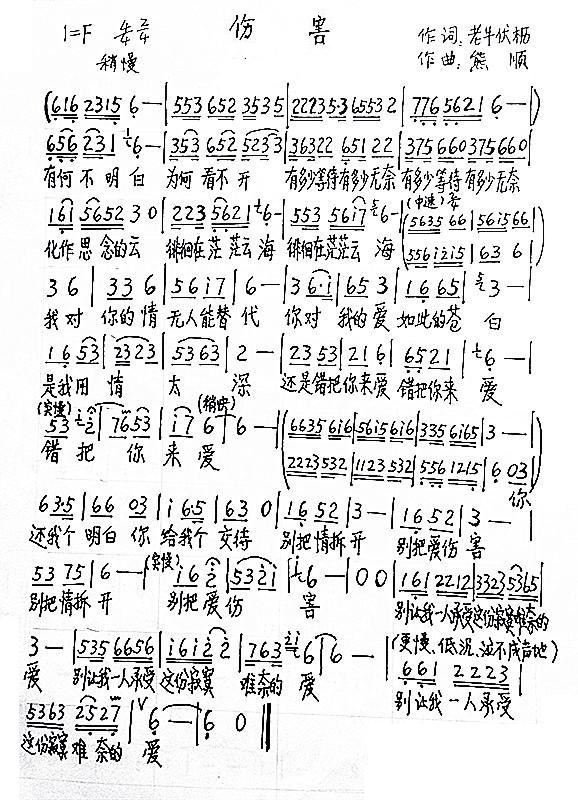 伤 害
1=F
稍慢
作词:老牛伏枥
作曲:熊 顺
(616 2315 6—|553 652 3535|22235·3 6553 2|776 5621 6—|)
656 231 6—|353 652 5233|36322 65122|375660375660|
有何不明白 为何看不开 有多少等待有多少无奈 有多少等待有多少无奈
161 5652 3 0|223 5621 6—|553 5617 6—
(中速)
(5635 66|5615 66
556 1215|63 6)
化作思念的云 徘徊在茫茫云海 徘徊在茫茫云 海
3 6|33 6|5617|6—|3 6·1|65 3|16 65|3—|
我对 你的情 无人能替代 你对 我的爱 如此的苍 白
16 53|2323|5363|2—|23 53|21 6|6521|6—|
是我用 情 太 深 还是错把你来爱 错把你来 爱
(突慢) (稍快)
53 12|7653|17 6|6—|
(6635 616|5615 616|335 6165|3—|
2223532|1123 532|556 1215|6 03)
错 把 你 来 爱
你
63·5|66 03|1 65|63 0|16 52|3—|16 52|3—|
还我个 明白 你 给我个 交待 别把情拆开 别把爱伤 害
53 75|6—|(突慢)16 2|5321|6—|00|161 2212|3323 5365|
别把情拆开 别把爱伤 害 别让我一人承受这份寂寞难奈的
3—|535 6656|1612 2|763 6|6—|
(更慢、低沉、泣不成声地)
661 2223|
爱 别让我一人承受 这份寂寞 难奈的 爱
别让我一人承受
5363 2527|6—|6 0||
这份寂寞 难奈的 爱